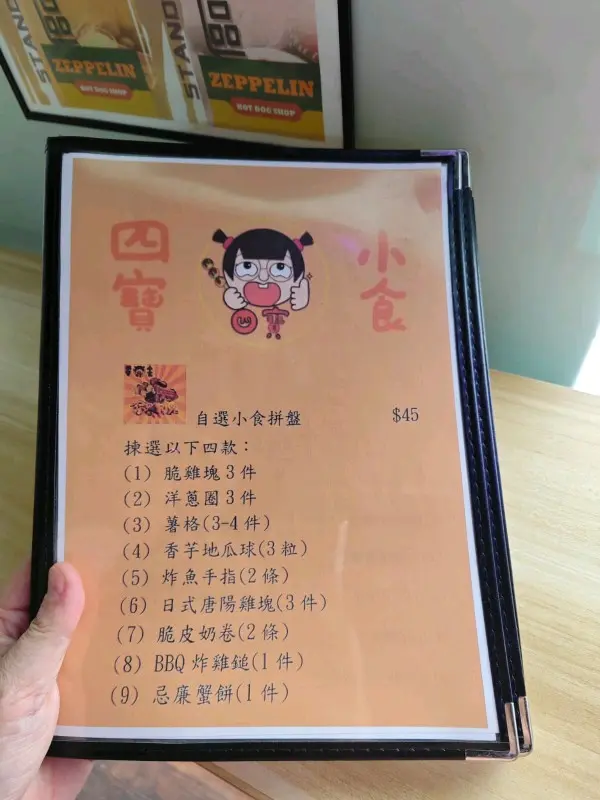 STAND
ZEPPELIN
HOT DOG SHOP
STAND
ZEPPELIN
HOT DOG SHOP
四寶
小食
寶
自選小食拼盤 $45
揀選以下四款：
(1) 脆雞塊3件
(2) 洋蔥圈3件
(3) 薯格(3-4件)
(4) 香芋地瓜球(3粒)
(5) 炸魚手指(2條)
(6) 日式唐陽雞塊(3件)
(7) 脆皮奶卷(2條)
(8) BBQ 炸雞鎚(1件)
(9) 忌廉蟹餅(1件)